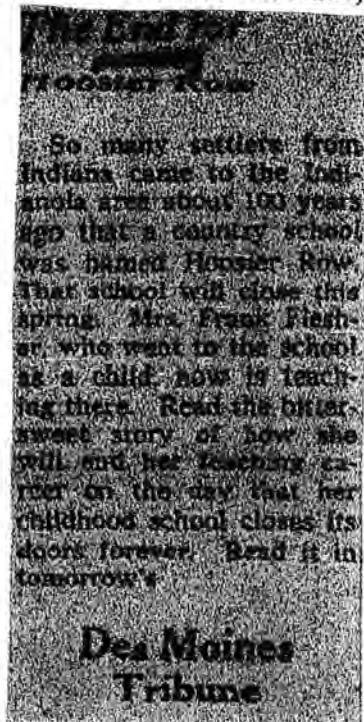 The End for
Hoosier Row
So many settlers from
Indiana came to the Indi-
anola area about 100 years
ago that a country school
was named Hoosier Row.
That school will close this
spring. Mrs. Frank Flesh-
er, who went to the school
as a child, now is teach-
ing there. Read the bitter-
sweet story of how she
will end her teaching ca-
reer on the day that her
childhood school closes its
doors forever. Read it in
tomorrow's
Des Moines
Tribune